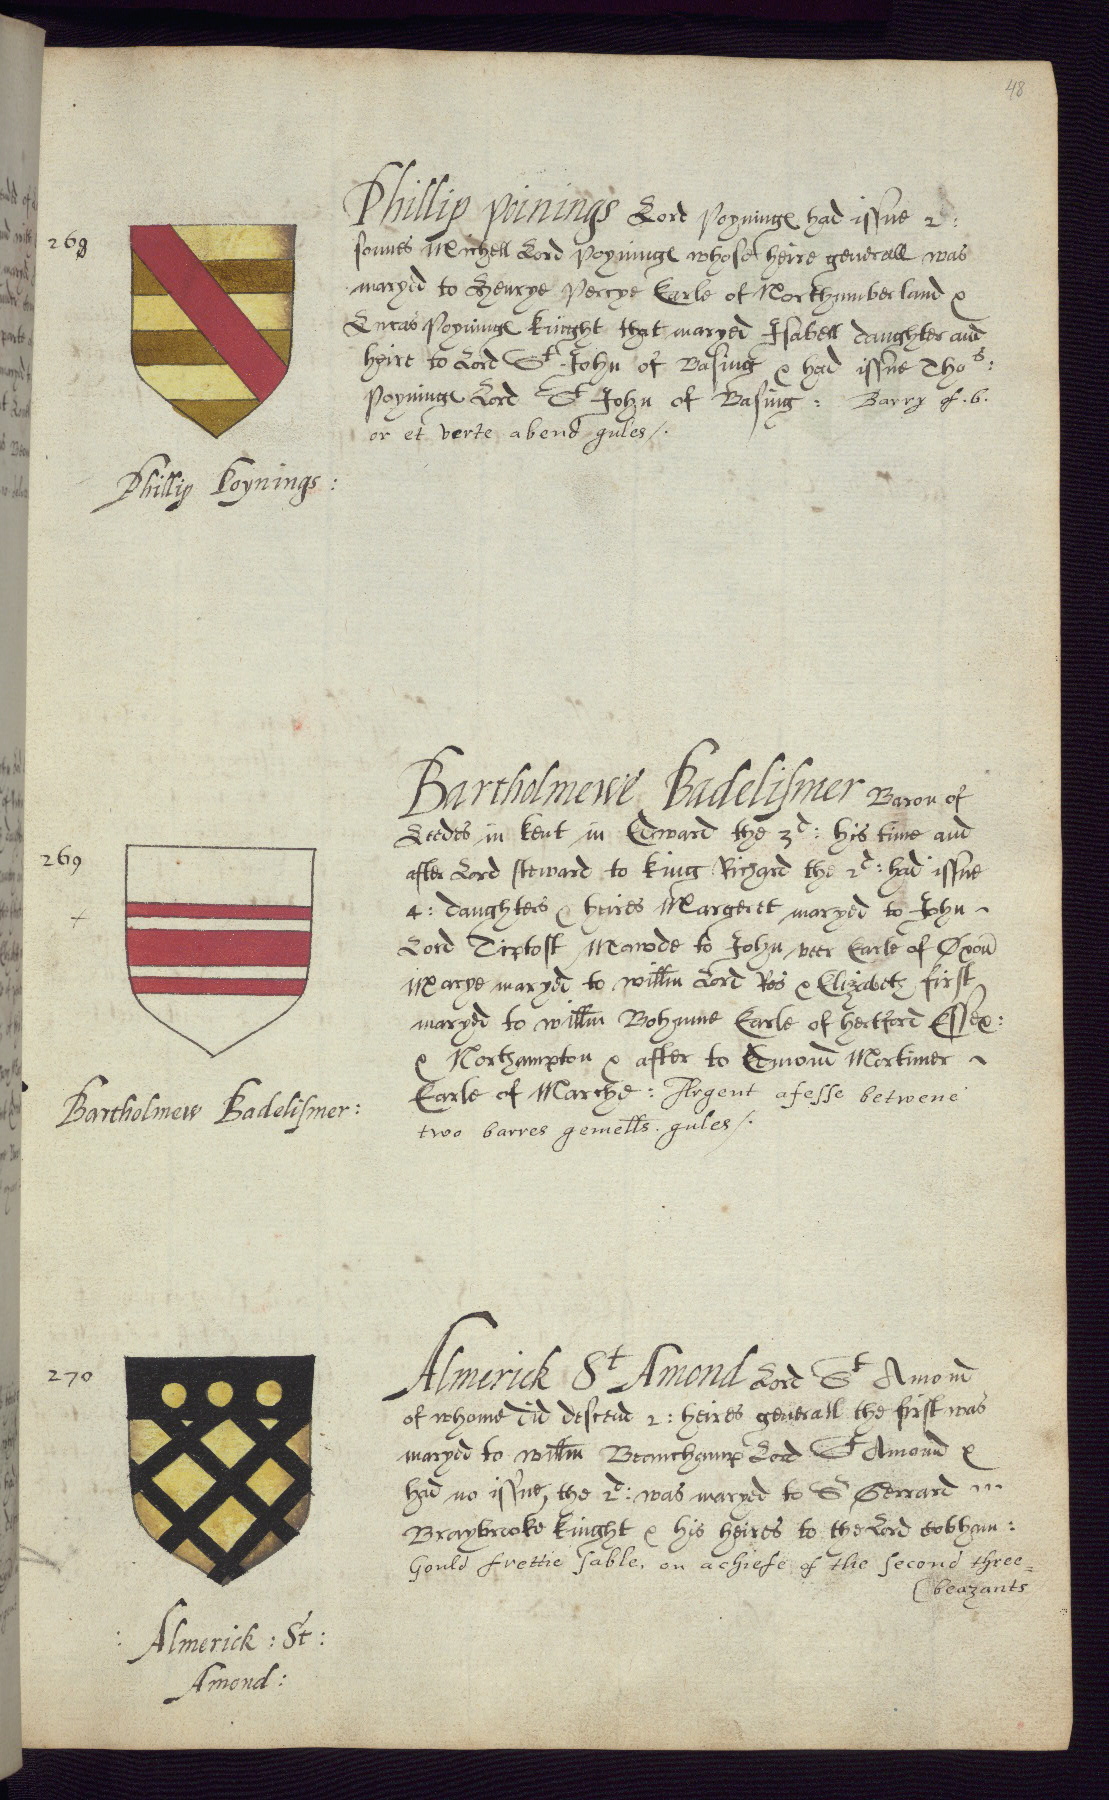 48
268
Phillip Poinings Lord Poyninges had issue 2:
sonnes Michell Lord Poyninges whose heire generall was
maryed to Henrye Percye Earle of Northumberland &
Lucas Poyninges knight that maryed Isabell daughter and
heire to Lord St. John of Basing & had issue Thos:
Poyninges Lord St John of Basing: Barry of .6.
or et verte abend gules/.
Phillip Poynings:
269
Bartholmewe Badelismer Baron of
Leedes in kent in Edward the 3d: his time and
after Lord steward to king Richard the 2d: had issue
4: daughters & heires Margeret maryed to John ~
Lord Tiptost Mawde to John veer Earle of Oxon
Marye maryed to Willm Lord Ros & Elizabeth first
maryed to willm Bohunne Earle of hertford Essex:
& Northampton & after to Edmond Mortimer ~
Earle of Marche: Argent afesse betwene
two barres gemells. gules/.
Bartholmew Badelismer:
270
Almerick St Amond Lord St Amond
of whome did descend 2: heires generall the first was
maryed to willm Beauchamp Lord St Amond &
had no issue, the 2d: was maryed to Sr Gerrard
Braybrooke knight & his heires to the Lord Cobham:
Gould frettie sable, on achiefe of the second three
beazants
: Almerick : St :
Amond: